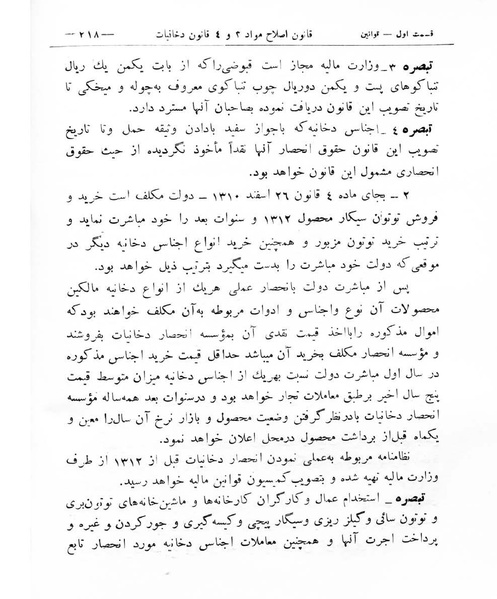 قسمت اول — قوانین قانون اصلاح مواد ۳ و ٤ قانون دخانیات — ۲۱۸ —
تبصره ۳ ـ وزارت مالیه مجاز است قبوضی راکه از بابت یکمن یك ریال
تنباکوهای پست و یکمن دوریال چوب تنباکوی معروف به‌چوله و میخکی تا
تاریخ تصویب این قانون دریافت نموده بصاحبان آنها مسترد دارد.
تبصره ٤ ـ اجناس دخانیه‌که باجواز سفید بادادن وثیقه حمل وتا تاریخ
تصویب این قانون حقوق انحصار آنها نقداً مأخوذ نگردیده از حیث حقوق
انحصاری مشمول این قانون خواهد بود.
۲ ــ بجای ماده ٤ قانون ۲٦ اسفند ۱۳۱۰ ـ دولت مکلف است خرید و
فروش توتون سیگار محصول ۱۳۱۲ و سنوات بعد را خود مباشرت نماید و
ترتیب خرید توتون مزبور و همچنین خرید انواع اجناس دخانیه دیگر در
موقعی‌که دولت خود مباشرت را بدست میگیرد بترتیب ذیل خواهد بود.
پس از مباشرت دولت بانحصار عملی هریك از انواع دخانیه مالکین
محصولات آن نوع واجناس و ادوات مربوطه به‌آن مکلف خواهند بودکه
اموال مذکوره رابااخذ قیمت نقدی آن بمؤسسه انحصار دخانیات بفروشند
و مؤسسه انحصار مکلف بخرید آن میباشد حداقل قیمت خرید اجناس مذکوره
در سال اول مباشرت دولت نسبت بهریك از اجناس دخانیه میزان متوسط قیمت
پنج سال اخیر برطبق معاملات تجار خواهد بود و درسنوات بعد همه‌ساله مؤسسه
انحصار دخانیات بادرنظرگرفتن وضعیت محصول و بازار نرخ آن سال‌را معین و
یکماه قبل‌از برداشت محصول درمحل اعلان خواهد نمود.
نظامنامه مربوطه به‌عملی نمودن انحصار دخانیات قبل از ۱۳۱۲ از طرف
وزارت مالیه تهیه شده و بتصویب‌کمسیون قوانین مالیه خواهد رسید.
تبصره ـ استخدام عمال وکارگران کارخانه‌ها و ماشین‌خانه‌های توتون‌بری
و توتون سائی وگیلز ریزی وسیگار پیچی وکیسه‌گیری و جورکردن و غیره و
پرداخت اجرت آنها و همچنین معاملات اجناس دخانیه مورد انحصار تابع